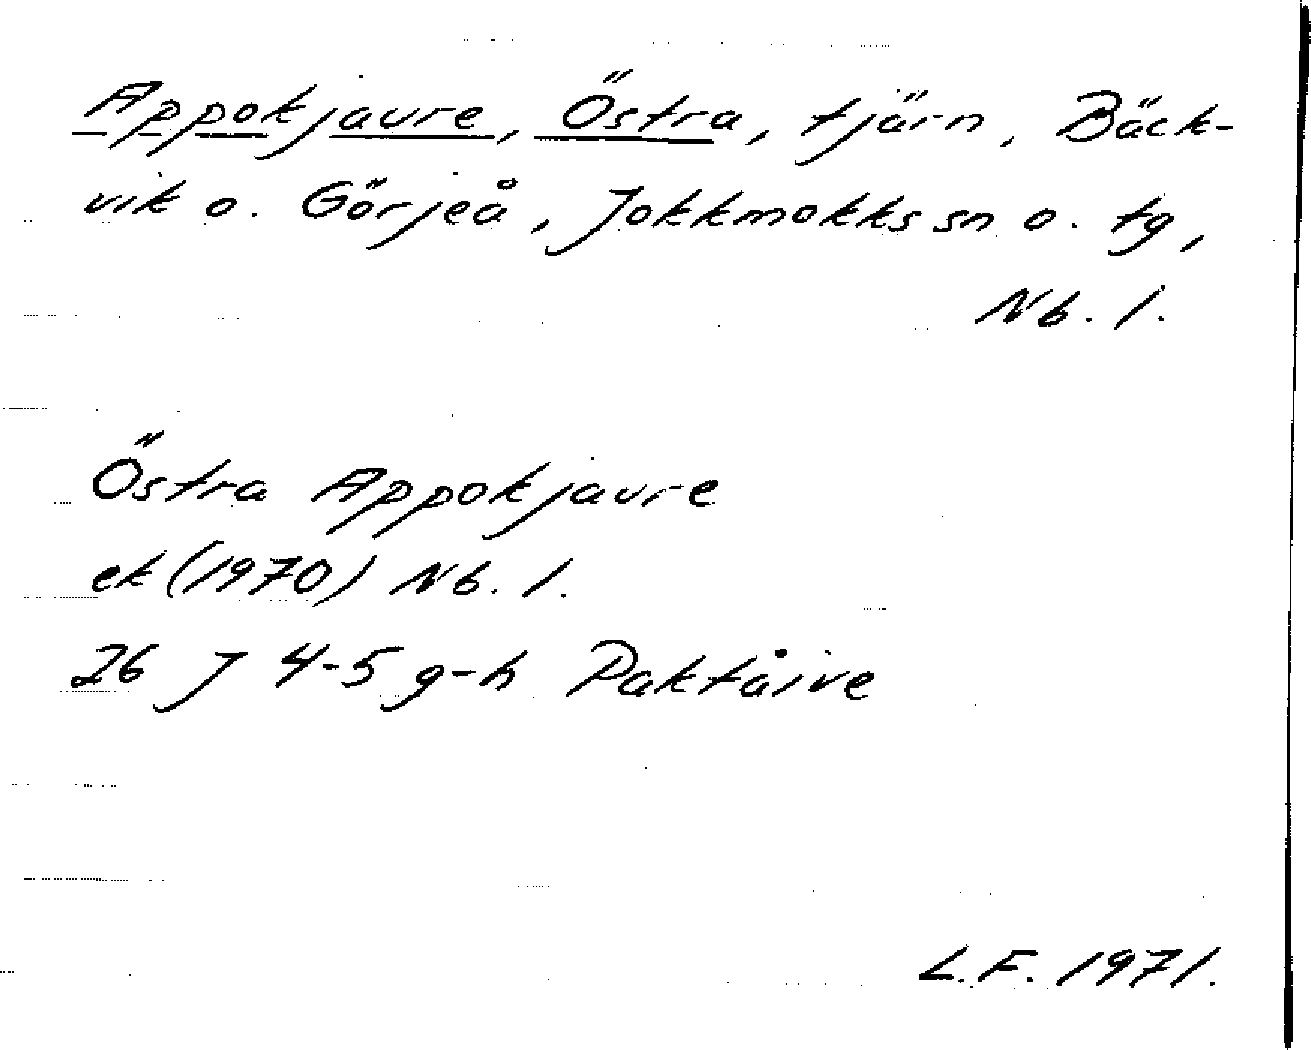 Appokjaure, Östra, tjärn, Bäck-
vik o. Görjeå, Jokkmokks sn o. tg,
Nb. l.
Östra Appokjaure
ek (1970) Nb. l.
26 J 4-5 g-h Paktåive
L.F. 1971.